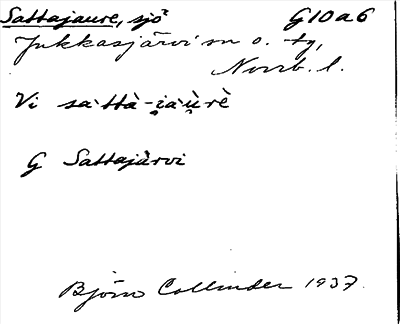 Sattajaure, sjö G10a6
Jukkasjärvi sn o. tg,
Norrb. l.
Vi sa·ttà-i̯a·ù̯·rè
G Sattajärvi
Björn Collinder 1937.